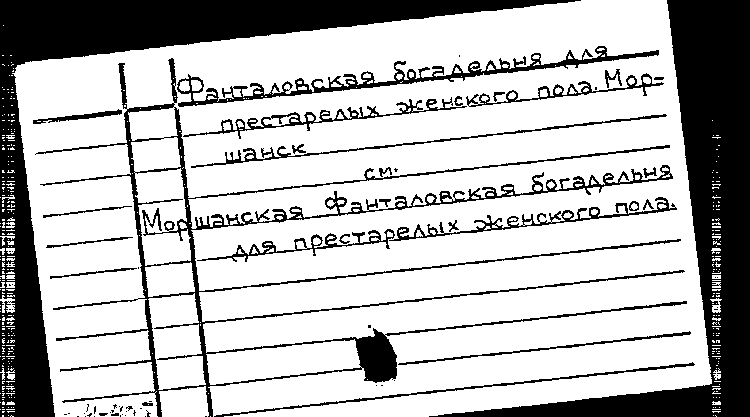 Фанталовская богадельня для
престарелых женского пола. Мор=
шанск
см.
Моршанская Фанталовская богадельня
для престарелых женского пола.